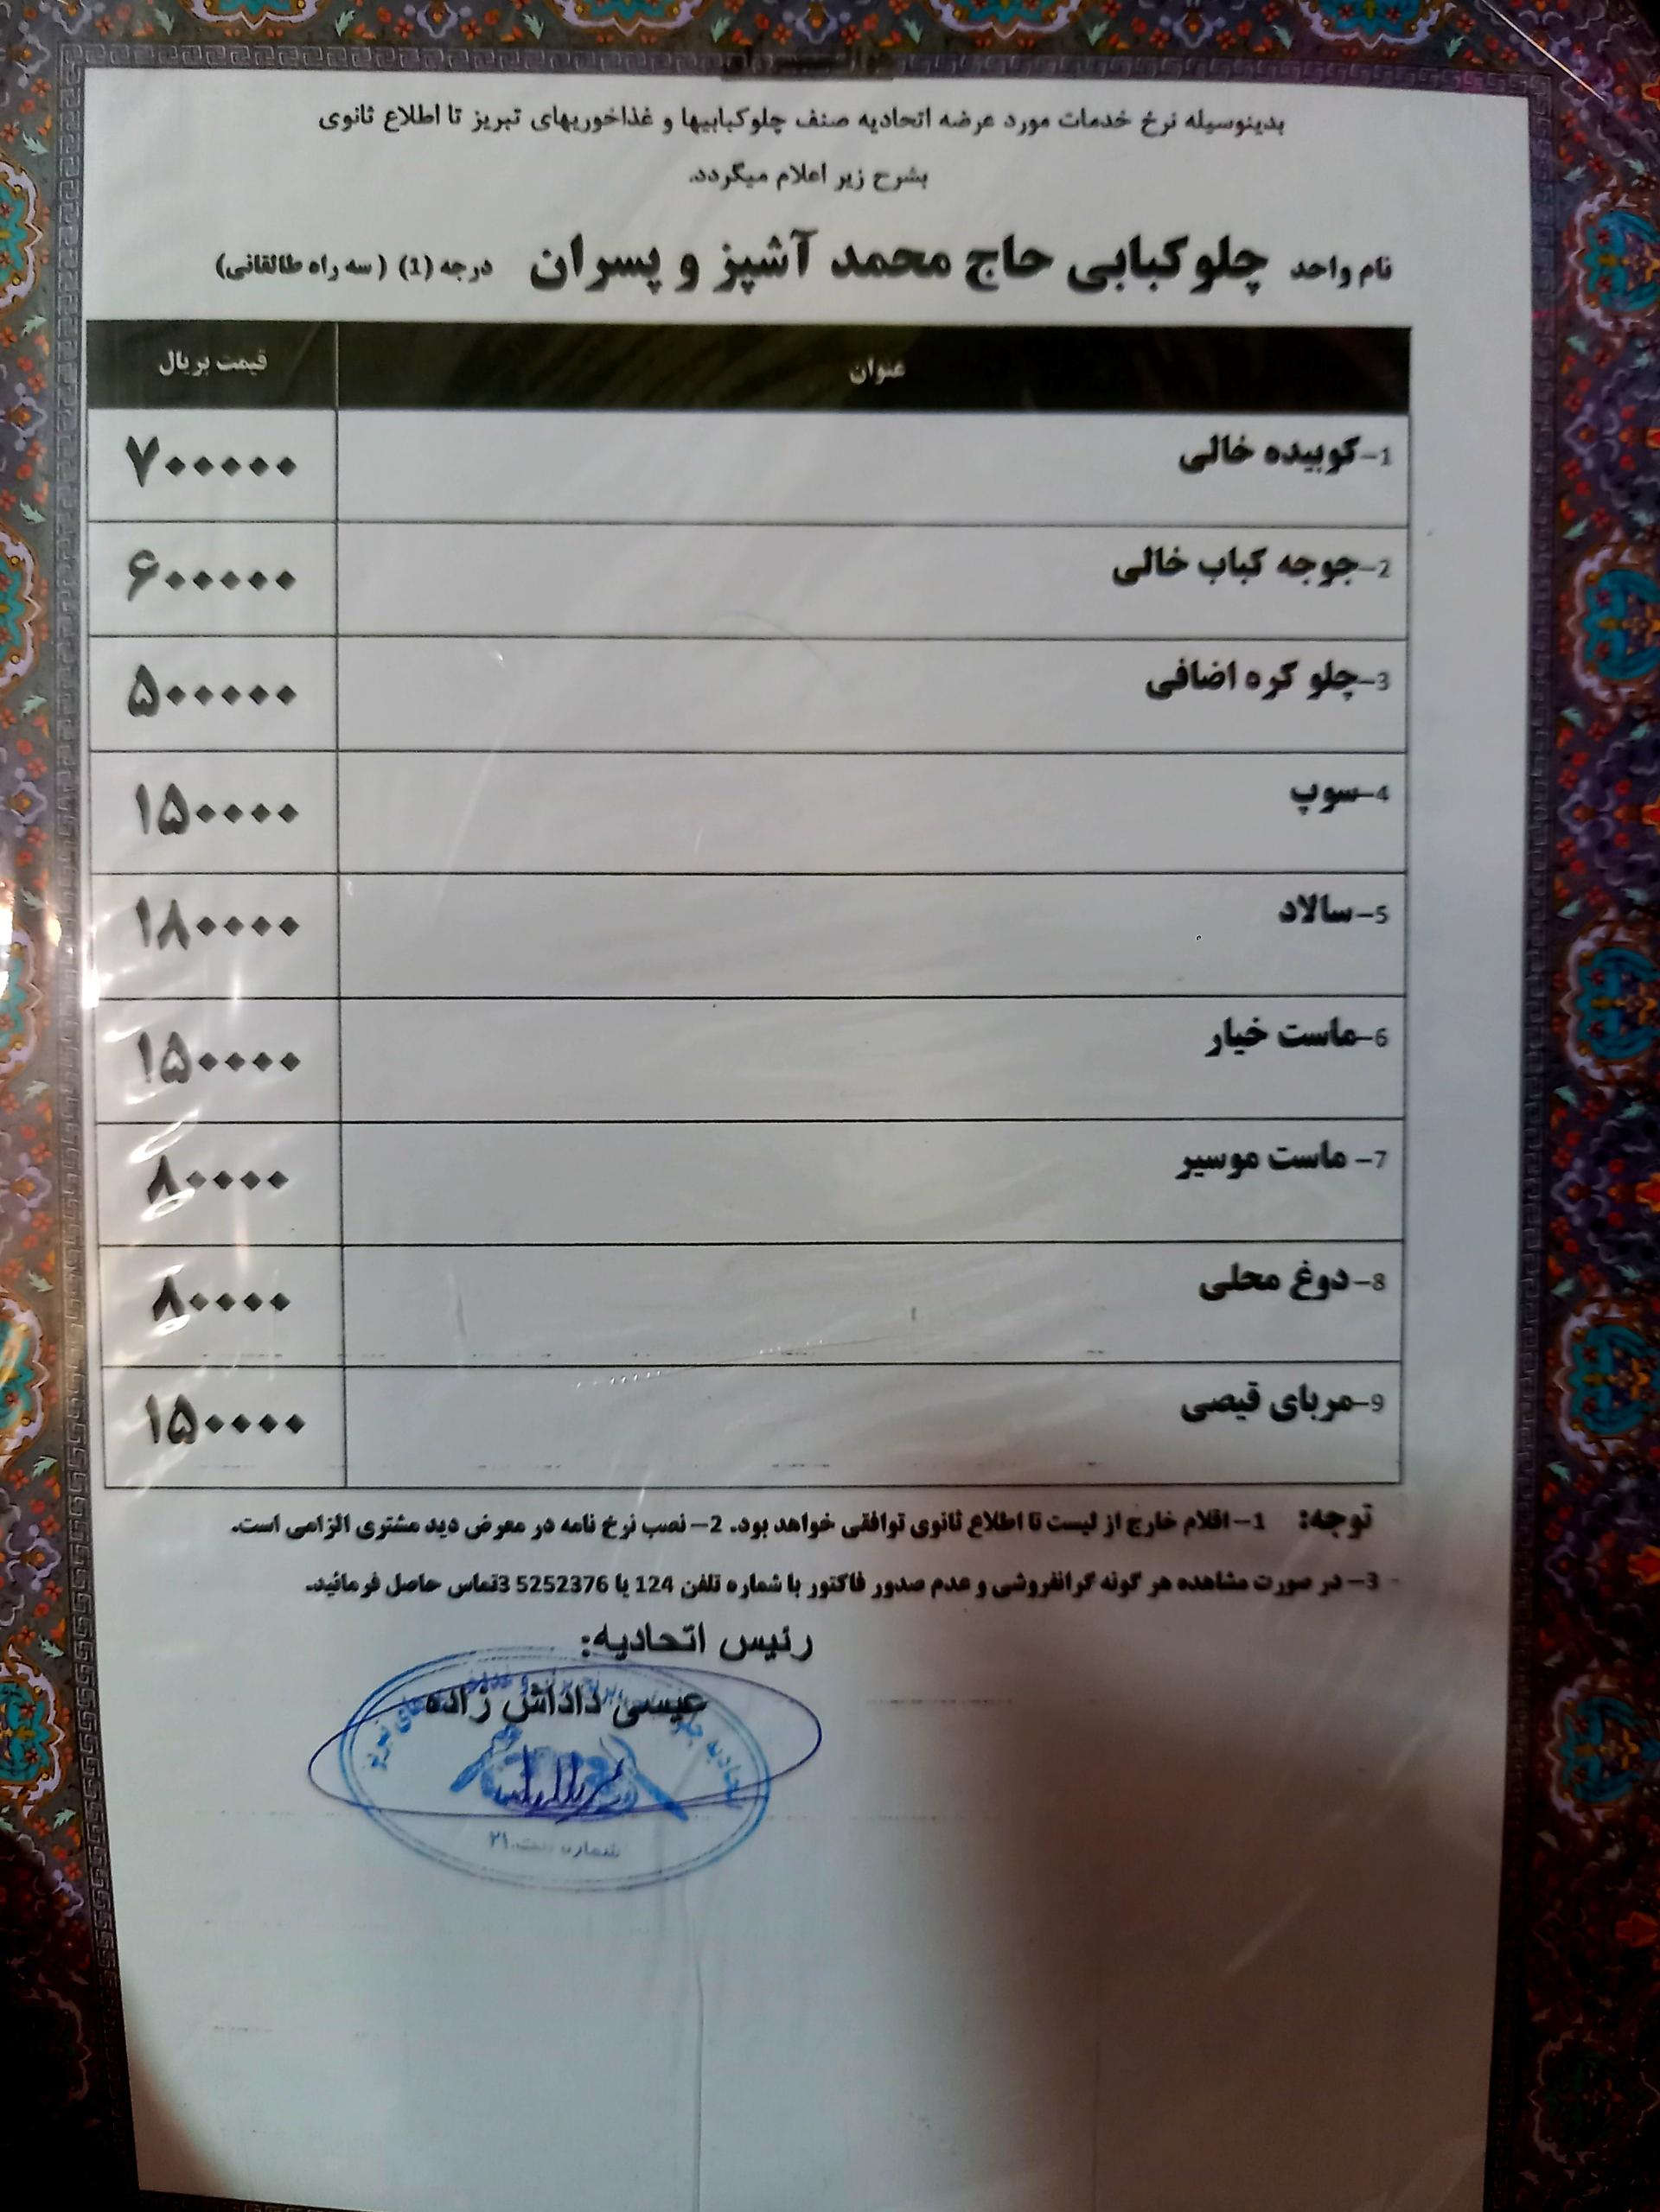 بدینوسیله نرخ خدمات مورد عرضه اتحادیه صنف چلوکبابیها و غذاخوریهای تبریز تا اطلاع ثانوی
بشرح زیر اعلام میگردد.
نام واحد چلوکبابی حاج محمد آشپز و پسران درجه (1) (سه راه طالقانی)
عنوان قیمت بریال
1-کوبیده خالی ۷۰۰۰۰۰
2-جوجه کباب خالی ۶۰۰۰۰۰
3-چلو کره اضافی ۵۰۰۰۰۰
4-سوپ ۱۵۰۰۰۰
5-سالاد ۱۸۰۰۰۰
6-ماست خیار ۱۵۰۰۰۰
7- ماست موسیر ۸۰۰۰۰
8-دوغ محلی ۸۰۰۰۰
9-مربای قیصی ۱۵۰۰۰۰
توجه: 1-اقلام خارج از لیست تا اطلاع ثانوی توافقی خواهد بود. 2- نصب نرخ نامه در معرض دید مشتری الزامی است.
3- در صورت مشاهده هر گونه گرانفروشی و عدم صدور فاکتور با شماره تلفن 124 یا 5252376 3تماس حاصل فرمائید.
رئیس اتحادیه:
عیسی داداش زاده